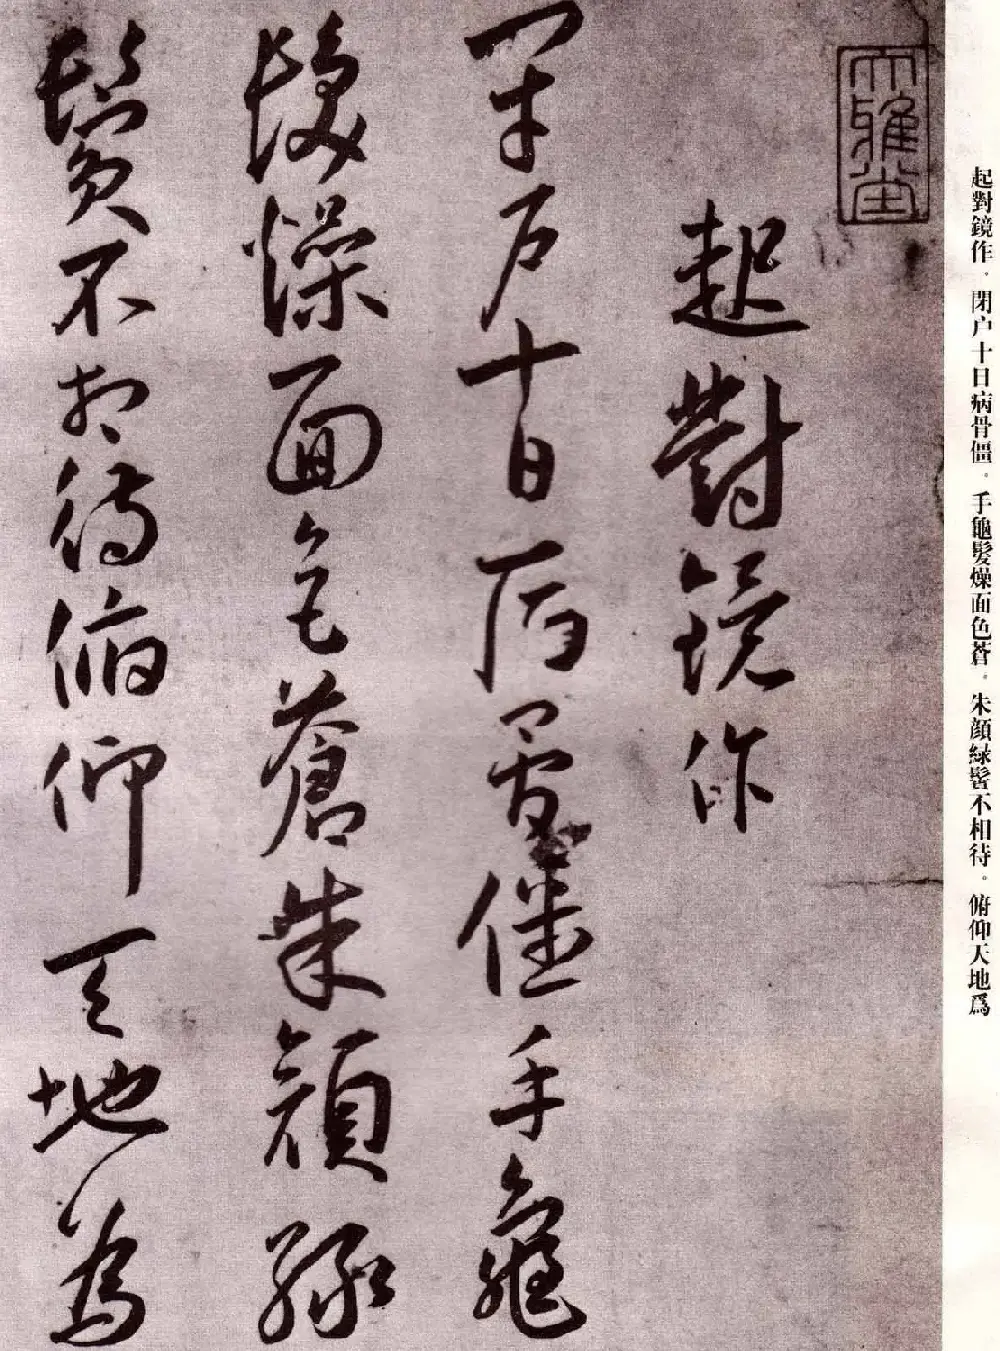 起對鏡作。閉户十日病骨僵。手龜髮燥面色蒼。朱顔緑鬢不相待。俯仰天地爲
大雅堂
起對鏡作
閉户十日病骨僵手龜
髮燥面色蒼朱顔緑
鬢不相待俯仰天地爲